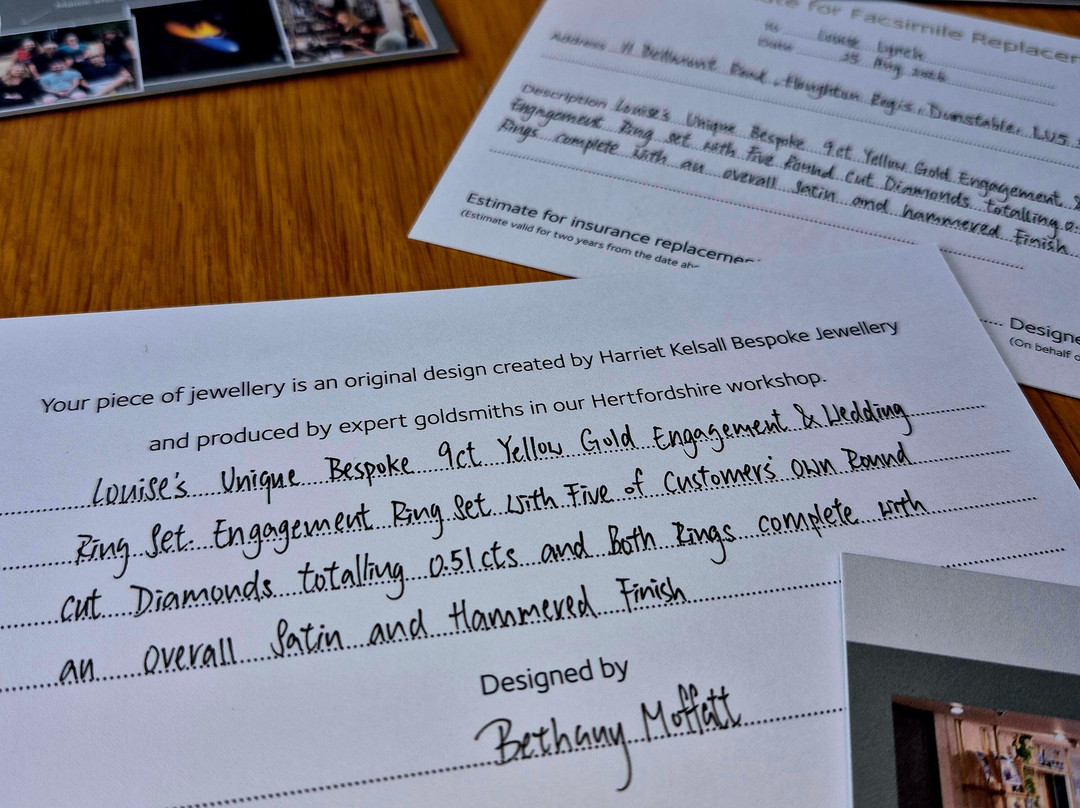 te for Facsimile Replacem
Louise Lynch
Address
Road, Houghton Regis, Dunstable, LU5
Description Louise's Unique Bespoke 9ct Yellow Gold Engagement &
Engagement Ring set with Five Round Cut Diamonds totalling 0.
Rings complete with an overall Satin and hammered Finish
Estimate for insurance replacemen
(Estimate valid for two years from the date ab
Designe
(On behalf o
Your piece of jewellery is an original design created by Harriet Kelsall Bespoke Jewellery
and produced by expert goldsmiths in our Hertfordshire workshop.
Louise's Unique Bespoke 9ct Yellow Gold Engagement & Wedding
Ring Set. Engagement Ring Set with Five of Customers' own Round
cut Diamonds totalling 0.51cts and Both Rings complete with
an overall Satin and Hammered Finish
Designed by
Bethany Moffatt